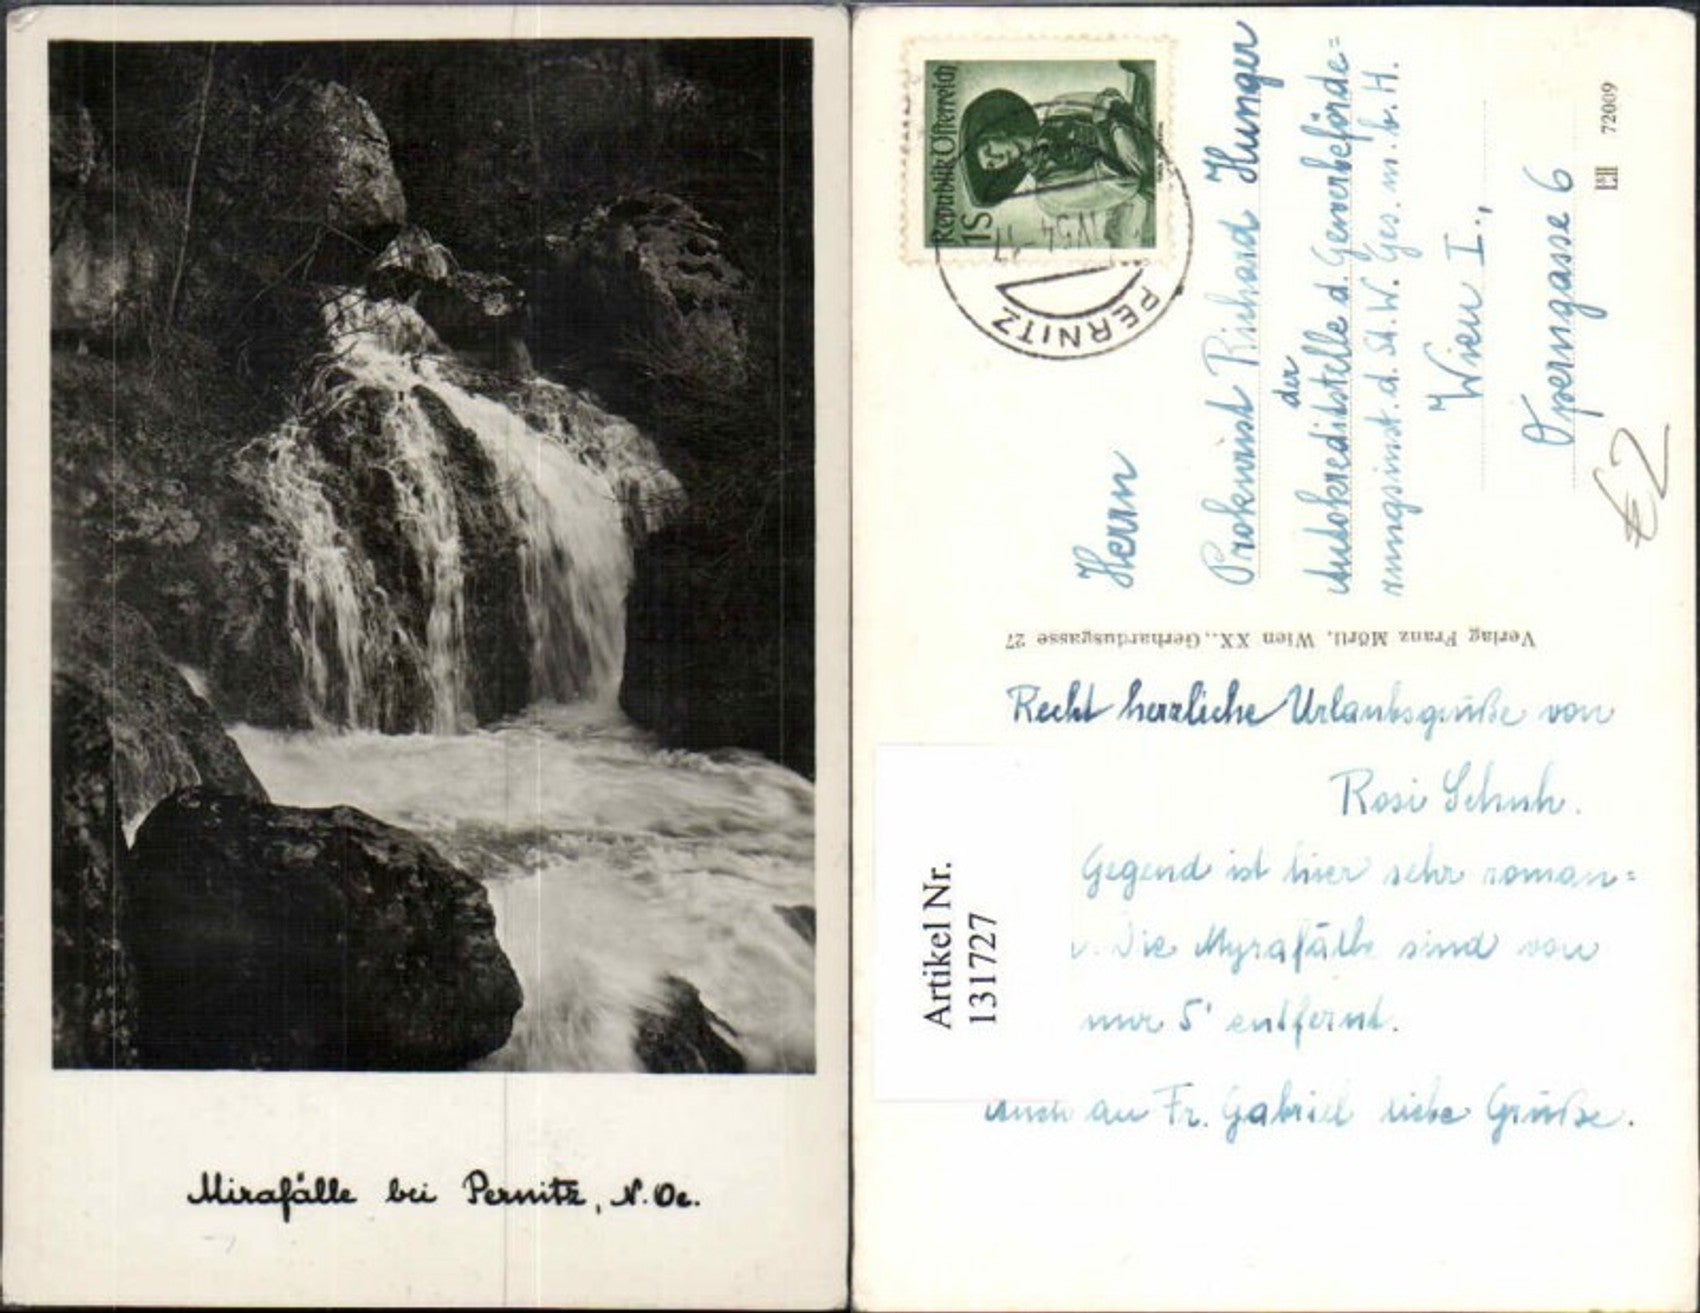 Mirafälle bei Pernitz, N.Oe.
Republik Österreich
1S
PERNITZ
Herrn
Prokurist Richard Hunger
der
Autokreditstelle d. Gewerbeförde=
rungsinst. d. St. W. Ges. m. b. H.
Wien I.,
Operngasse 6
72009
€2
Verlag Franz Mörtl, Wien XX., Gerhardusgasse 27
Recht herzliche Urlaubsgrüße von
Rosi Schuh.
Gegend ist hier sehr roman=
Die Myrafälle sind von
nur 5' entfernt.
Auch an Fr. Gabriel liebe Grüße.
Artikel Nr.
131727